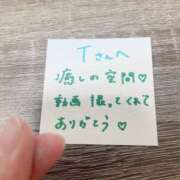 Tさんへ
癒しの空間♡
動画撮ってくれて
ありがとう♡